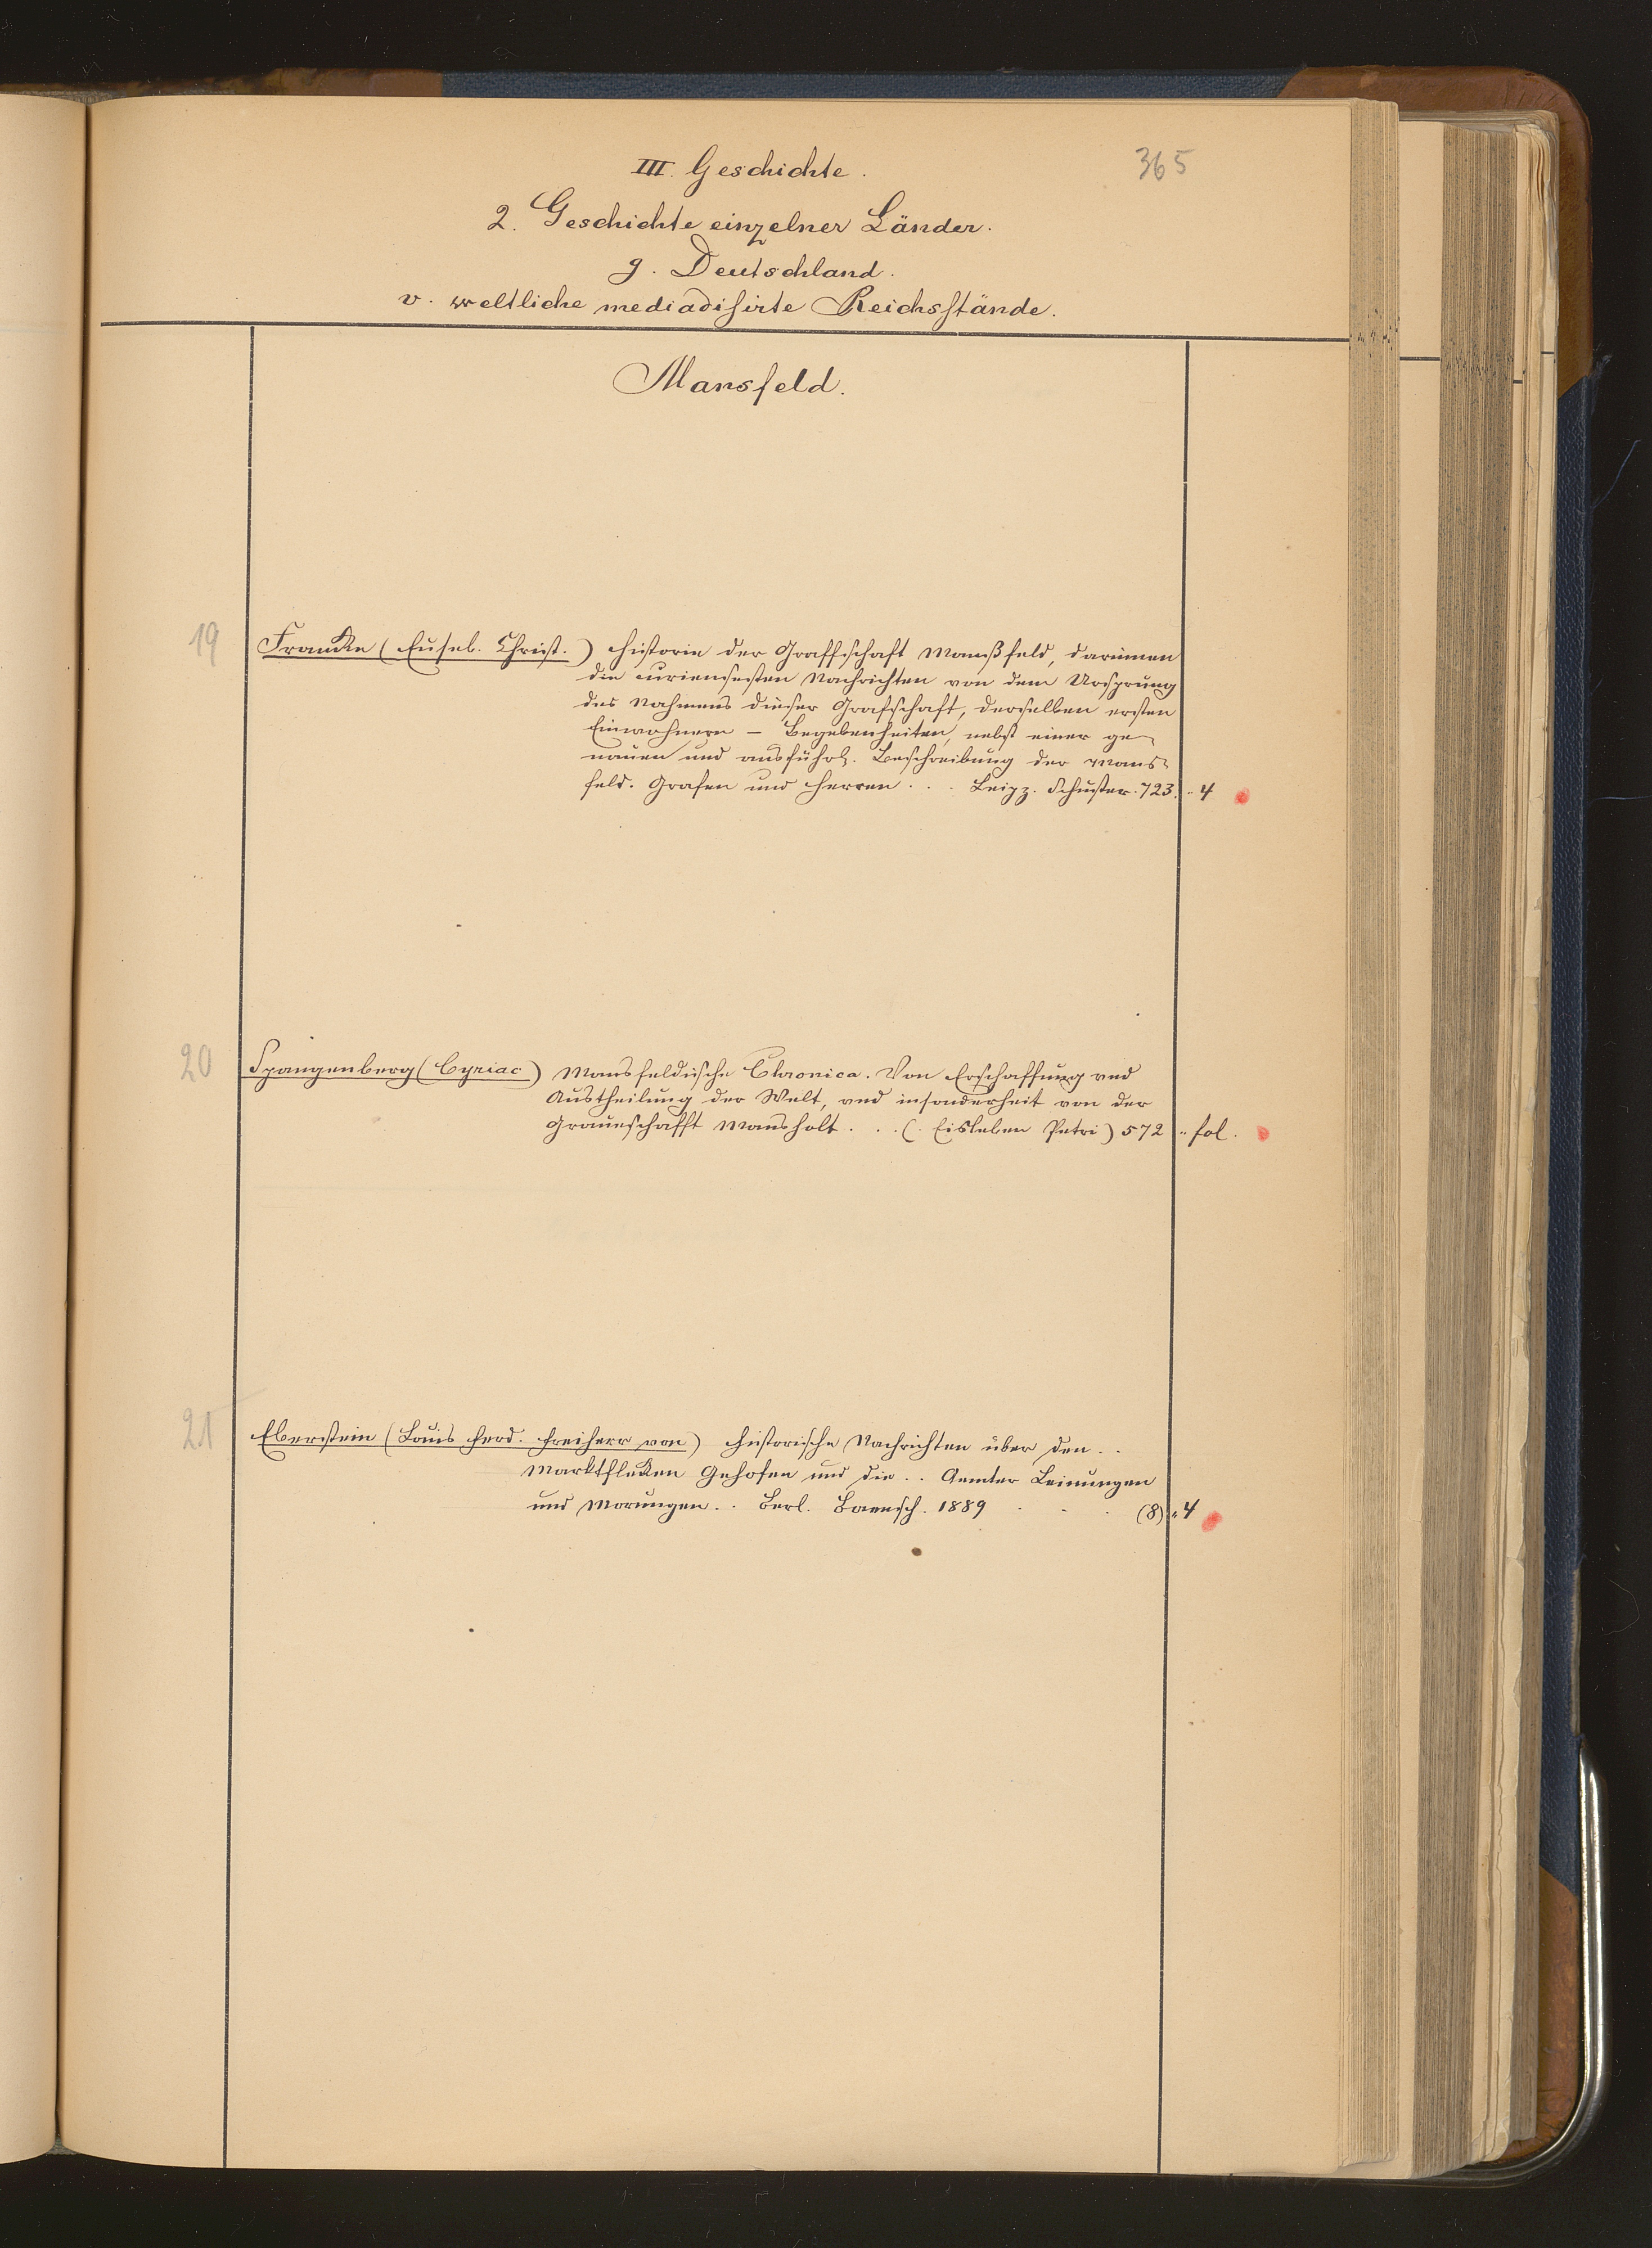 365
III. Geschichte.
2. Geschichte einzelner Länder.
g. Deutschland.
v. weltliche mediadisirte Reichsstände.
Mansfeld.
19
Francke (Euseb. Christ.) Historie der Graffschaft Manßfeld, darinnen
die curieusesten Nachrichten von dem Ursprung
des Nahmens dieser Grafschaft, derselben ersten
Einwohnern – Begebenheiten, nebst einer ge-
nauen und ausführl. Beschreibung der Mans-
feld. Grafen und Herren . . . Leipz. Schuster. 723. " 4
20
Spangenberg (Cyriac) Mansfeldische Chronica. Von Erschaffung vnd
Austheilung der Welt, vnd insonderheit von der
Graueschafft Mansholt . . . (. Eisleben Petri) 572 " fol.
21
Eberstein (Louis Ferd. Freiherr von) Historische Nachrichten über den . .
Marktflecken Gehofen und die . . Aemter Leinungen
und Morungen . . Berl. Baensch. 1889 . . . (8) " 4